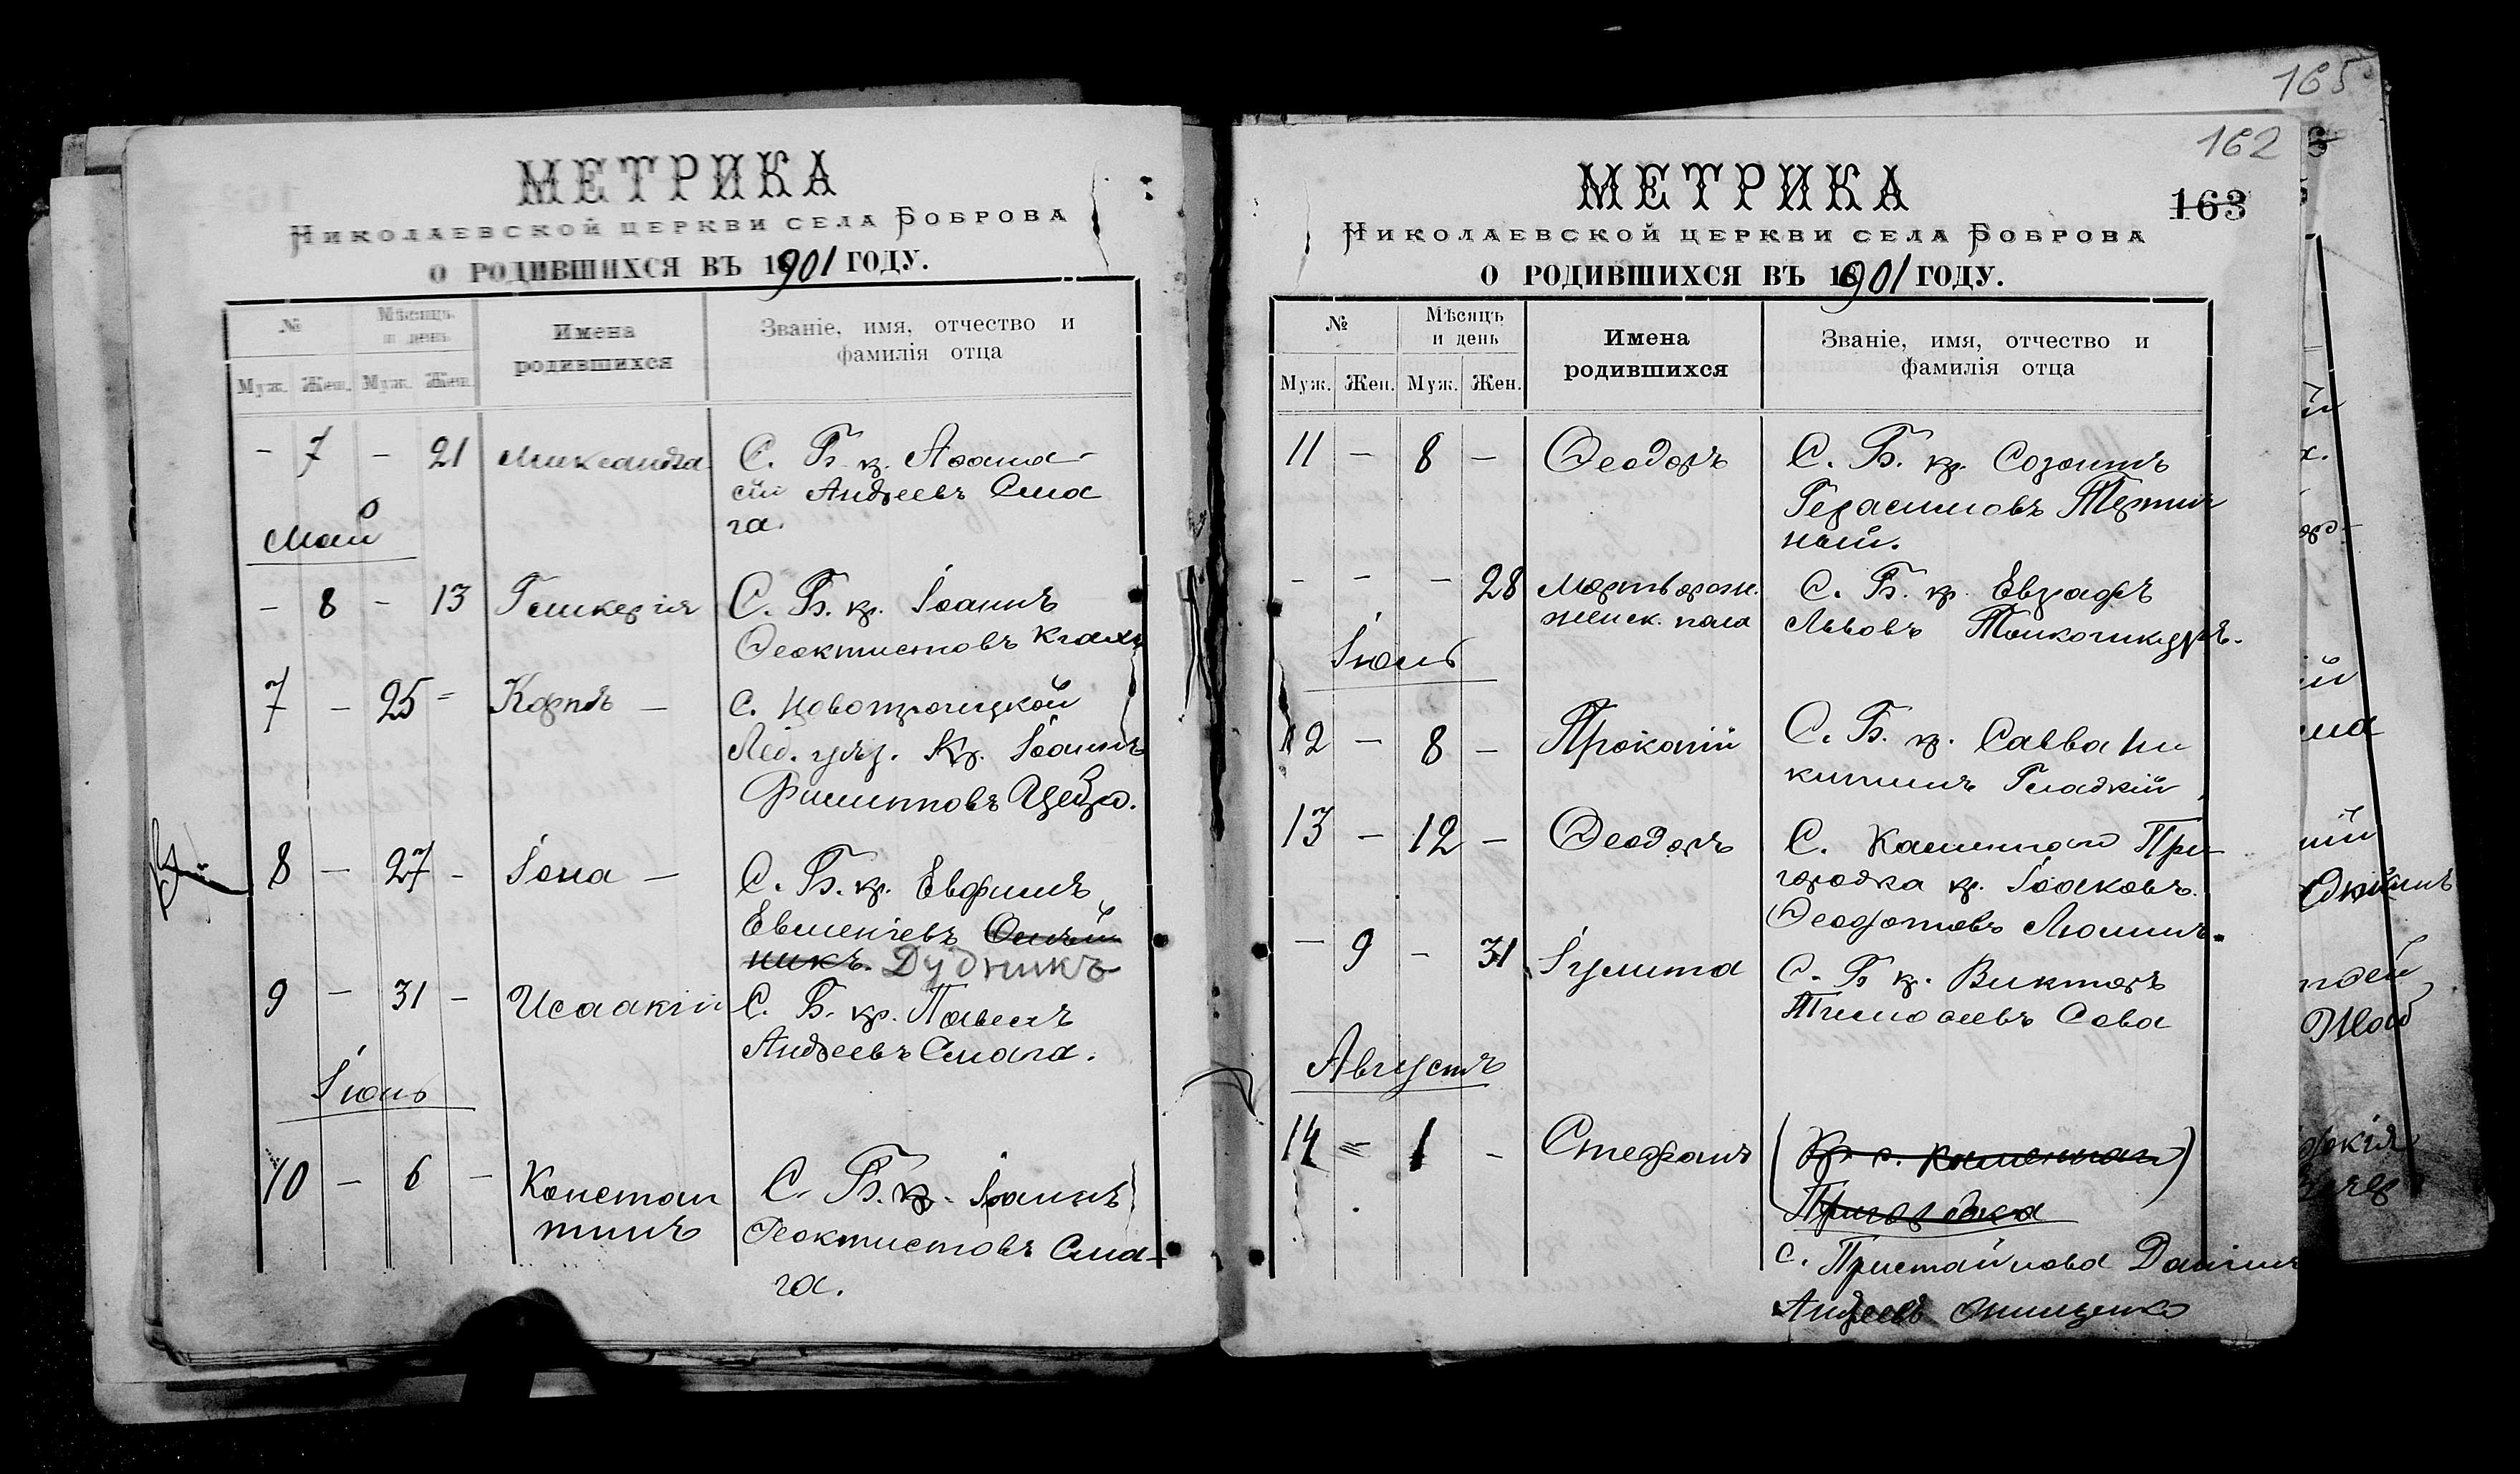 МЕТРИКА
НИКОЛАЕВСКОЙ ЦЕРКВИ СЕЛА БОБРОВА
О РОДИВШИХСЯ ВЪ 1901 ГОДУ.
№ Мѣсяцъ и день Имена родившихся Званіе, имя, отчество и фамилія отца
Муж. Жен. Муж. Жен.
- 7 - 21 Александра С. Б. кр. Аѳана-
сій Андреевъ Сма
га.
Май
- 8 - 13 Гликерія С. Б. кр. Іоаннъ
Ѳеоктистовъ
7 - 25 = Карпъ - С. Новотроицкой
Леб. уѣз. Кр. Іоаннъ
Филипповъ
8 - 27 - Іона - С. Б. кр. Евфимъ
Евменіевъ Олѣй
никъ. Дудникъ
9 - 31 - Исаакій С. Б. кр. Павелъ
Андреевъ Смага.
Іюнь
10 - 6 - Констан С. Б. кр. Іоаннъ
тинъ Ѳеоктистовъ Сма-
га.
165
162
МЕТРИКА
163
НИКОЛАЕВСКОЙ ЦЕРКВИ СЕЛА БОБРОВА
О РОДИВШИХСЯ ВЪ 1901 ГОДУ.
№ Мѣсяцъ и день Имена родившихся Званіе, имя, отчество и фамилія отца
Муж. Жен. Муж. Жен.
11 - 8 - Ѳеодоръ С. Б. кр. Созонтъ
Герасимовъ Терпил
ный.
- - - 28 Мертворож. С. Б. кр. Евграфъ
женск. пола Львовъ
Іюль
12 - 8 - Прокопій С. Б. кр. Савва Ни
китинъ Гладкій
13 - 12 - Ѳеодоръ С. Каменнаго При-
городка кр. Іоаковъ
Ѳеодотовъ
- 9 - 31 Іулитта С. Б кр. Викторъ
Тимоѳеевъ Сова
Августъ
14 = 1 - Стефанъ (Кр. с. Каменнаго)
Пригородка
с. Пристайлова Даніилъ
Андреевъ Онищенко